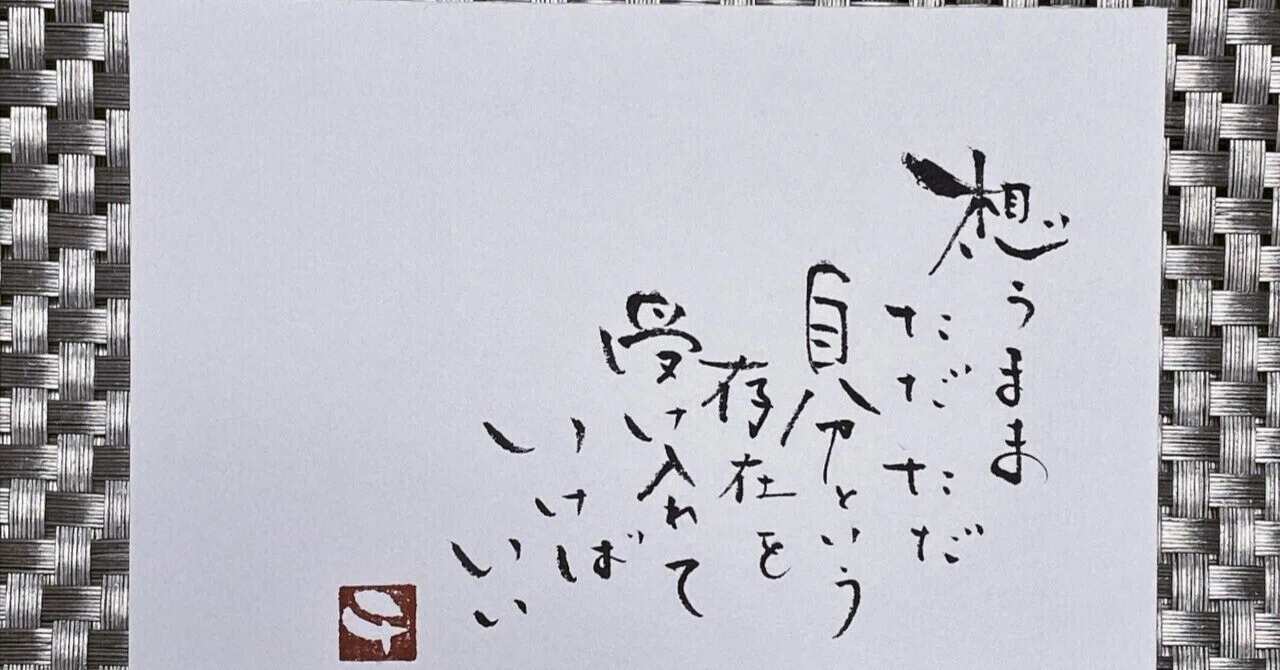 想うまま
ただただ
自分という
存在を
受け入れて
いけば
いい